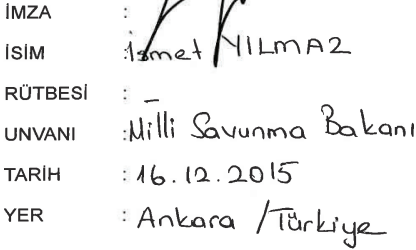 İMZA :
İSİM : İsmet YILMAZ
RÜTBESİ : –
UNVANI : Milli Savunma Bakanı
TARİH : 16.12.2015
YER : Ankara / Türkiye